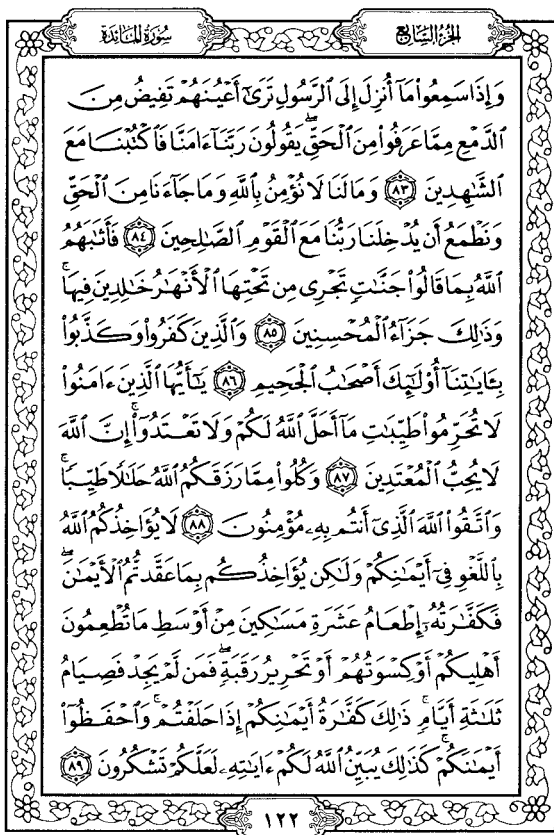 الجزء السابع
سورة المائدة
وَإِذَا سَمِعُوا۟ مَآ أُنزِلَ إِلَى ٱلرَّسُولِ تَرَىٰٓ أَعْيُنَهُمْ تَفِيضُ مِنَ
ٱلدَّمْعِ مِمَّا عَرَفُوا۟ مِنَ ٱلْحَقِّۖ يَقُولُونَ رَبَّنَآ ءَامَنَّا فَٱكْتُبْنَا مَعَ
ٱلشَّٰهِدِينَ ٨٣ وَمَالَنَا لَا نُؤْمِنُ بِٱللَّهِ وَمَا جَآءَنَا مِنَ ٱلْحَقِّ
وَنَطْمَعُ أَن يُدْخِلَنَا رَبُّنَا مَعَ ٱلْقَوْمِ ٱلصَّٰلِحِينَ ٨٤ فَأَثَٰبَهُمُ
ٱللَّهُ بِمَا قَالُوا۟ جَنَّٰتٍ تَجْرِى مِن تَحْتِهَا ٱلْأَنْهَٰرُ خَٰلِدِينَ فِيهَاۚ
وَذَٰلِكَ جَزَآءُ ٱلْمُحْسِنِينَ ٨٥ وَٱلَّذِينَ كَفَرُوا۟ وَكَذَّبُوا۟
بِـَٔايَٰتِنَآ أُو۟لَٰٓئِكَ أَصْحَٰبُ ٱلْجَحِيمِ ٨٦ يَٰٓأَيُّهَا ٱلَّذِينَ ءَامَنُوا۟
لَا تُحَرِّمُوا۟ طَيِّبَٰتِ مَآ أَحَلَّ ٱللَّهُ لَكُمْ وَلَا تَعْتَدُوٓا۟ۚ إِنَّ ٱللَّهَ
لَا يُحِبُّ ٱلْمُعْتَدِينَ ٨٧ وَكُلُوا۟ مِمَّا رَزَقَكُمُ ٱللَّهُ حَلَٰلًا طَيِّبًاۚ
وَٱتَّقُوا۟ ٱللَّهَ ٱلَّذِىٓ أَنتُم بِهِۦ مُؤْمِنُونَ ٨٨ لَا يُؤَاخِذُكُمُ ٱللَّهُ
بِٱللَّغْوِ فِىٓ أَيْمَٰنِكُمْ وَلَٰكِن يُؤَاخِذُكُم بِمَا عَقَّدتُّمُ ٱلْأَيْمَٰنَۖ
فَكَفَّٰرَتُهُۥٓ إِطْعَامُ عَشَرَةِ مَسَٰكِينَ مِنْ أَوْسَطِ مَا تُطْعِمُونَ
أَهْلِيكُمْ أَوْ كِسْوَتُهُمْ أَوْ تَحْرِيرُ رَقَبَةٍۖ فَمَن لَّمْ يَجِدْ فَصِيَامُ
ثَلَٰثَةِ أَيَّامٍۚ ذَٰلِكَ كَفَّٰرَةُ أَيْمَٰنِكُمْ إِذَا حَلَفْتُمْۚ وَٱحْفَظُوٓا۟
أَيْمَٰنَكُمْۚ كَذَٰلِكَ يُبَيِّنُ ٱللَّهُ لَكُمْ ءَايَٰتِهِۦ لَعَلَّكُمْ تَشْكُرُونَ ٨٩
١٢٢